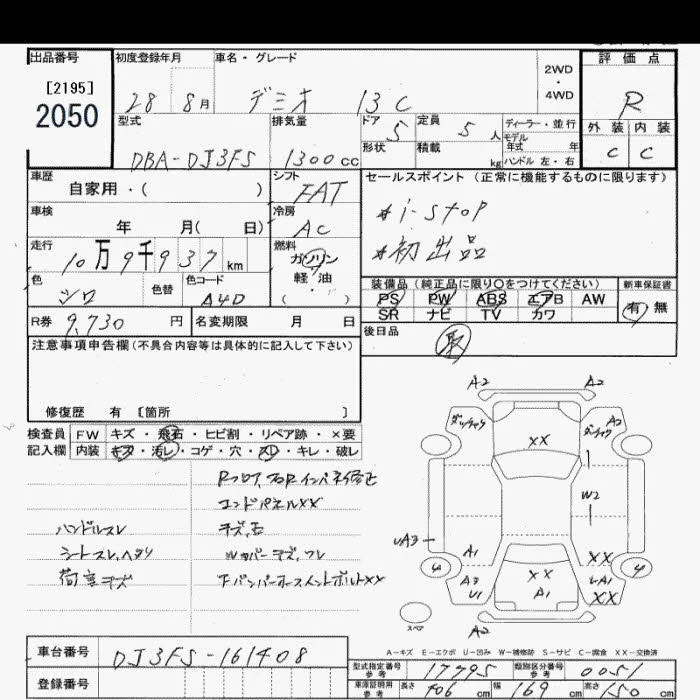 出品番号
[2195]
2050
初度登録年月
28 8月
車名・グレード
デミオ 13C
2WD
・
4WD
評価点
R
外装 内装
C C
型式
DBA-DJ3FS
排気量
1300cc
ドア 5
形状
定員 5人
積載 kg
ディーラー・並行
モデル
年式 年
ハンドル 左・右
車歴
自家用・( )
シフト
FAT
セールスポイント (正常に機能するものに限ります)
#i-stop
#初出品
車検
年 月( 日)
冷房
AC
走行
10万9千937km
燃料
ガソリン
軽・油
・( )
色
シロ
色替
色コード
A4D
装備品(純正品に限り○をつけてください)
PS PW ABS エアB AW
SR ナビ TV カワ
新車保証書
有 無
R券 9,730円
名変期限 月 日
後日品
取
注意事項申告欄(不具合内容等は具体的に記入して下さい)
修復歴 有 [箇所 ]
検査員
記入欄
FW キズ・飛石・ヒビ割・リペア跡・×要
内装 キズ・汚レ・コゲ・穴・スレ・キレ・破レ
エンドパネルXX
ハンドルスレ
キズ,凹
荷室キズ
A2
A2
A2
XX
W2
UA3
A1
XX
4
4
A3
U1
XX
A1
XX
A2
スペア
A-キズ E-エクボ U-凹み W-補修跡 S-サビ C-腐食 XX-交換済
車台番号
DJ3FS-161408
登録番号
型式指定番号
参考
17795
類別区分番号
参考
0051
車庫証明用
参考
長さ 406cm
幅 169cm
高さ 150cm